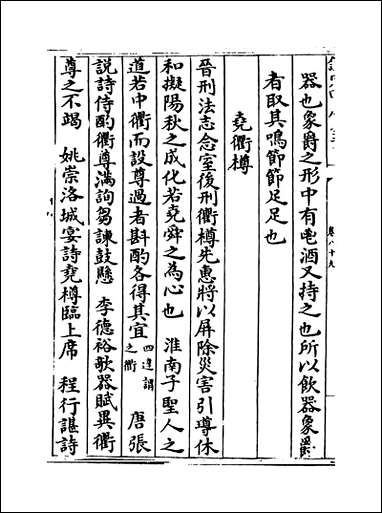 器也象爵之形中有鬯酒又持之也所以飲器象爵
者取其鳴節節足足也
堯衢樽
晉刑法志念室後刑衢樽先惠將以屏除災害引導休
和擬陽秋之成化若堯舜之為心也 淮南子聖人之
道若中衢而設尊過者斟酌各得其宜四達謂之衢 唐張
說詩侍酌衢尊滿詢芻諫鼓懸 李德裕欹器賦異衢
尊之不竭 姚崇洛城宴詩堯樽臨上席 程行諶詩